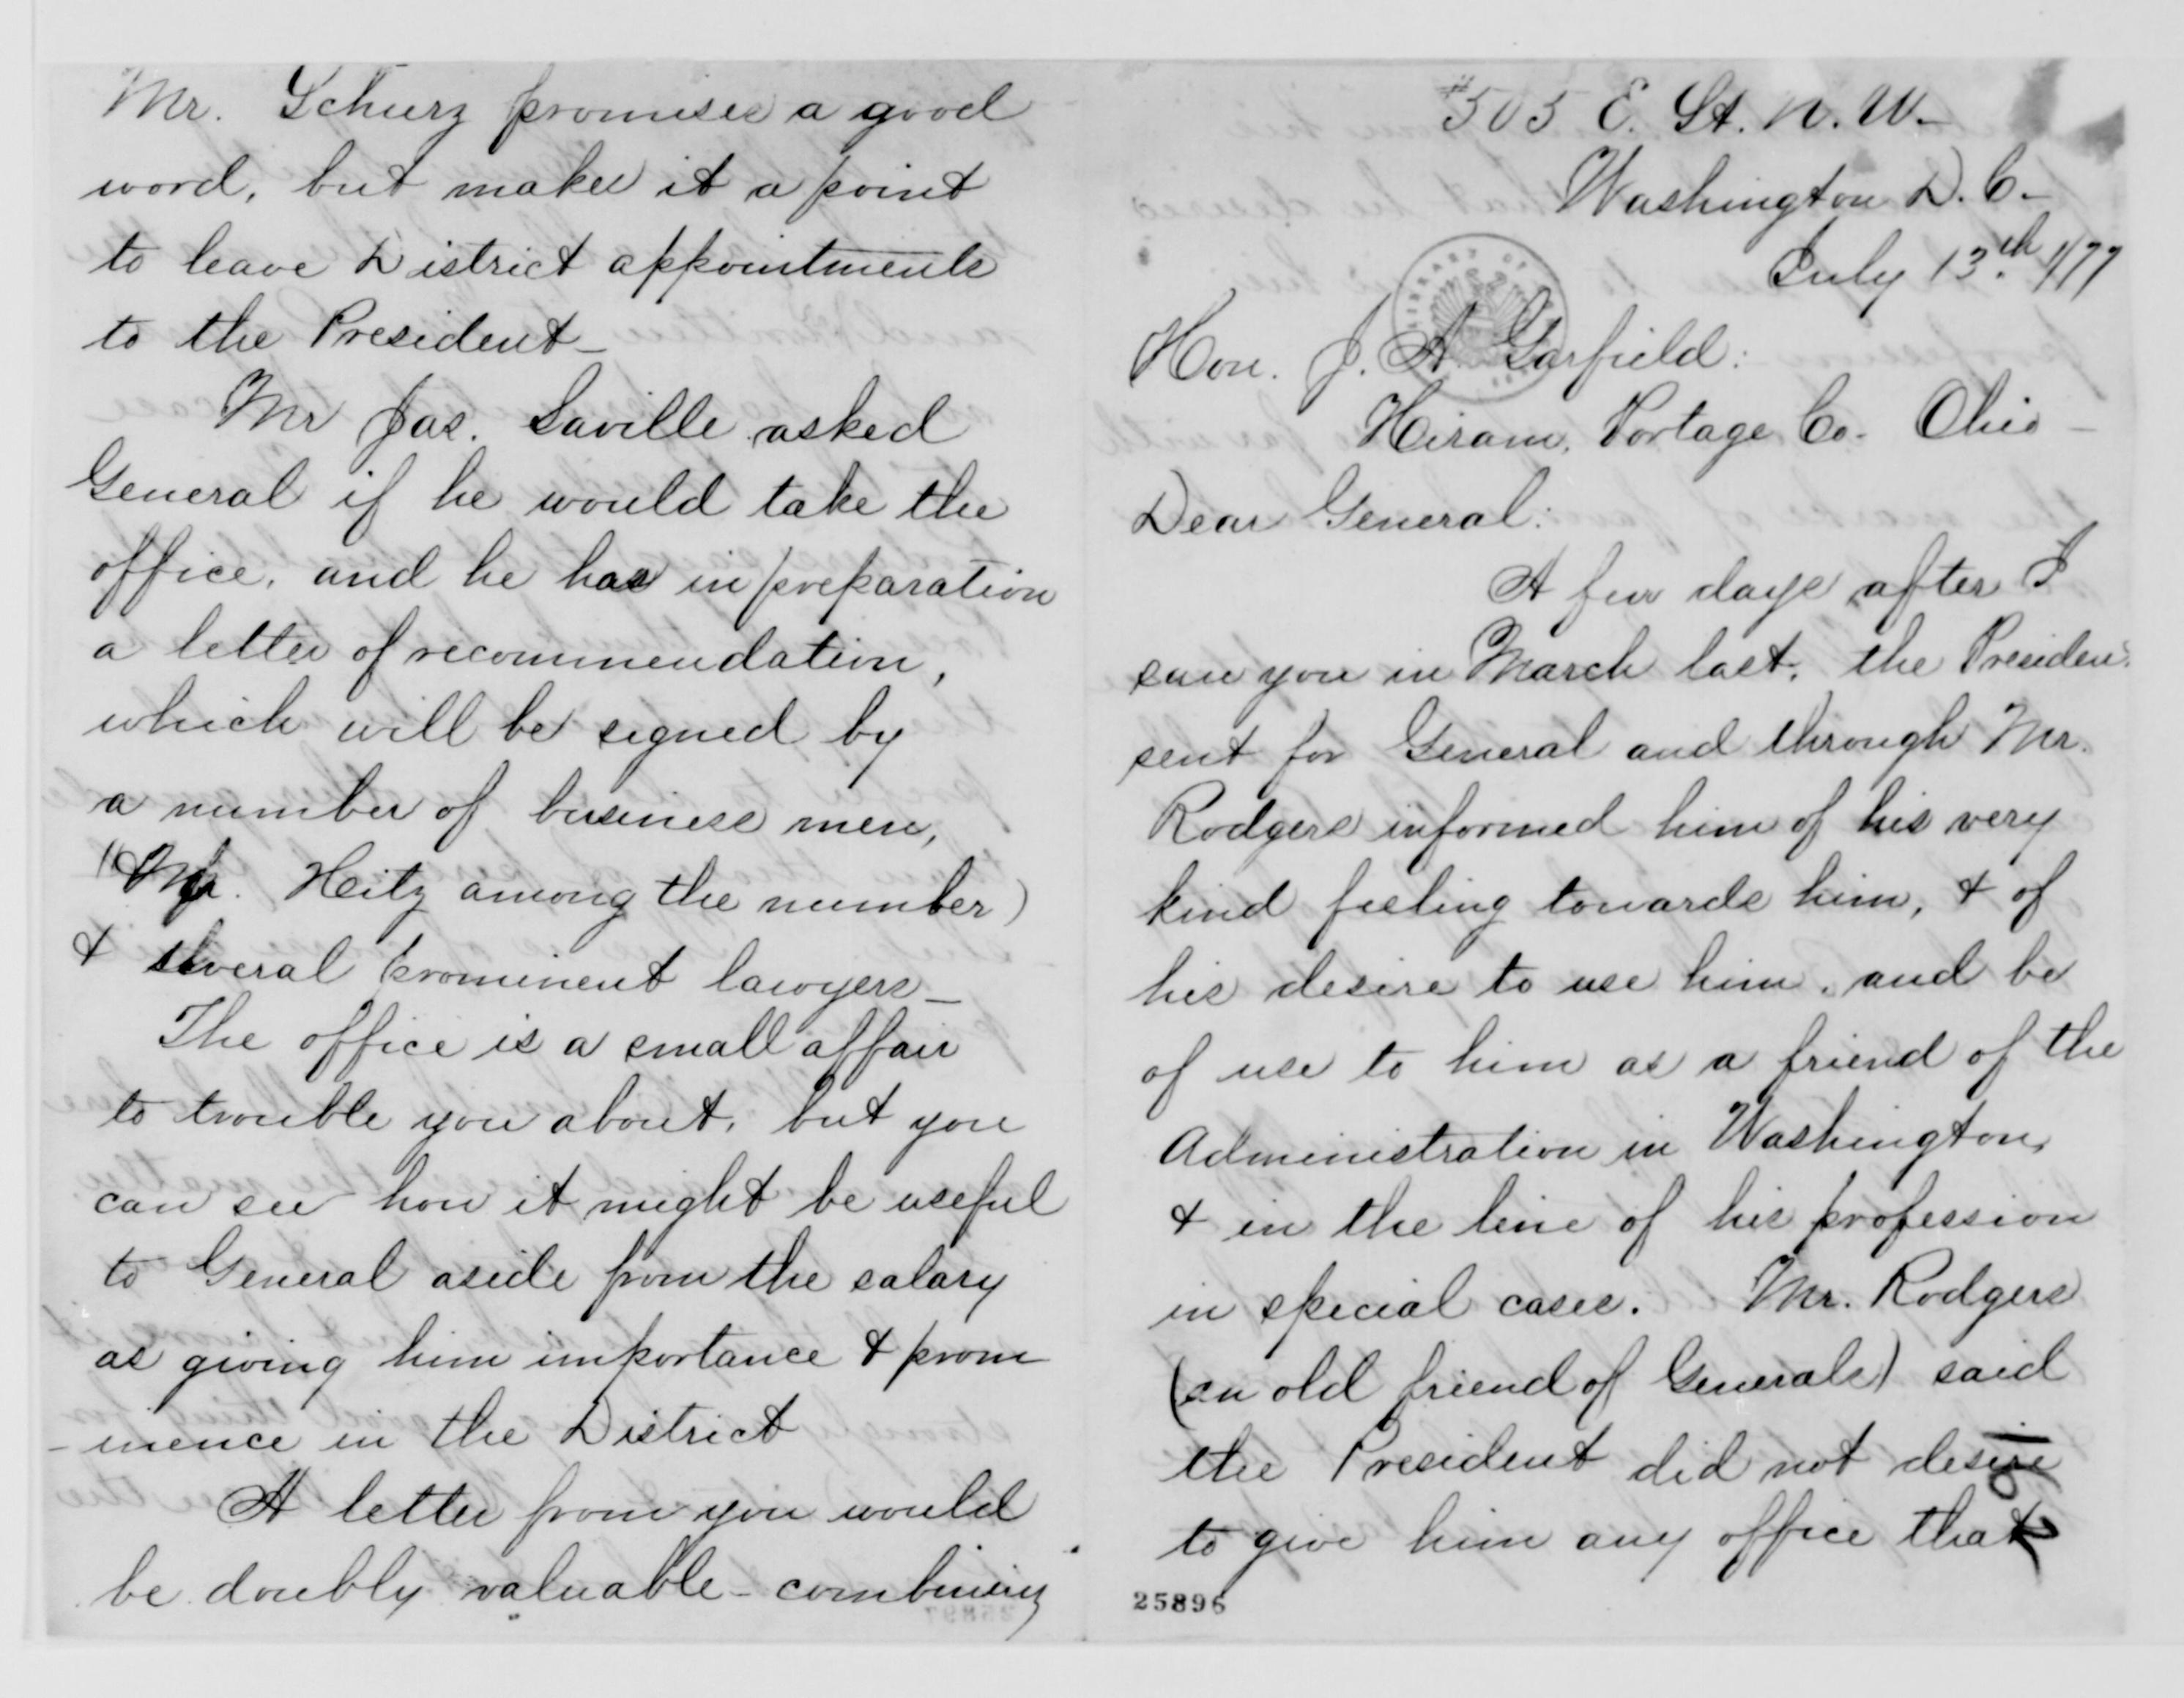 Mr. Schurz promises a good
word, but makes it a point
to leave District appointments
to the President_
Mr Jas. Saville asked
General if he would take the
office, and he has in preparation
a letter of recommendation,
which will be signed by
a number of business men,
(Mr. Heitz among the number)
& several prominent lawyers_
The office is a small affair
to trouble you about, but you
can see how it might be useful
to General aside from the salary
as giving him importance & prom
-inence in the District
A letter from you would
be doubly valuable - combining
#505 E. St. N. W.
Washington D. C.
July 13th 1/77
LIBRARY OF
Hon. J. A Garfield:
Hiram, Portage Co. Ohio -
Dear General:
A few days after I
saw you in March last, the Presiden
sent for General and through Mr.
Rodgers informed him of his very
kind feeling towards him, & of
his desire to use him, and be
of use to him as a friend of the
Administration in Washington,
& in the line of his profession
in special cases. Mr. Rodgers
(an old friend of Generals) said
the President did not desire
to give him any office that
25896